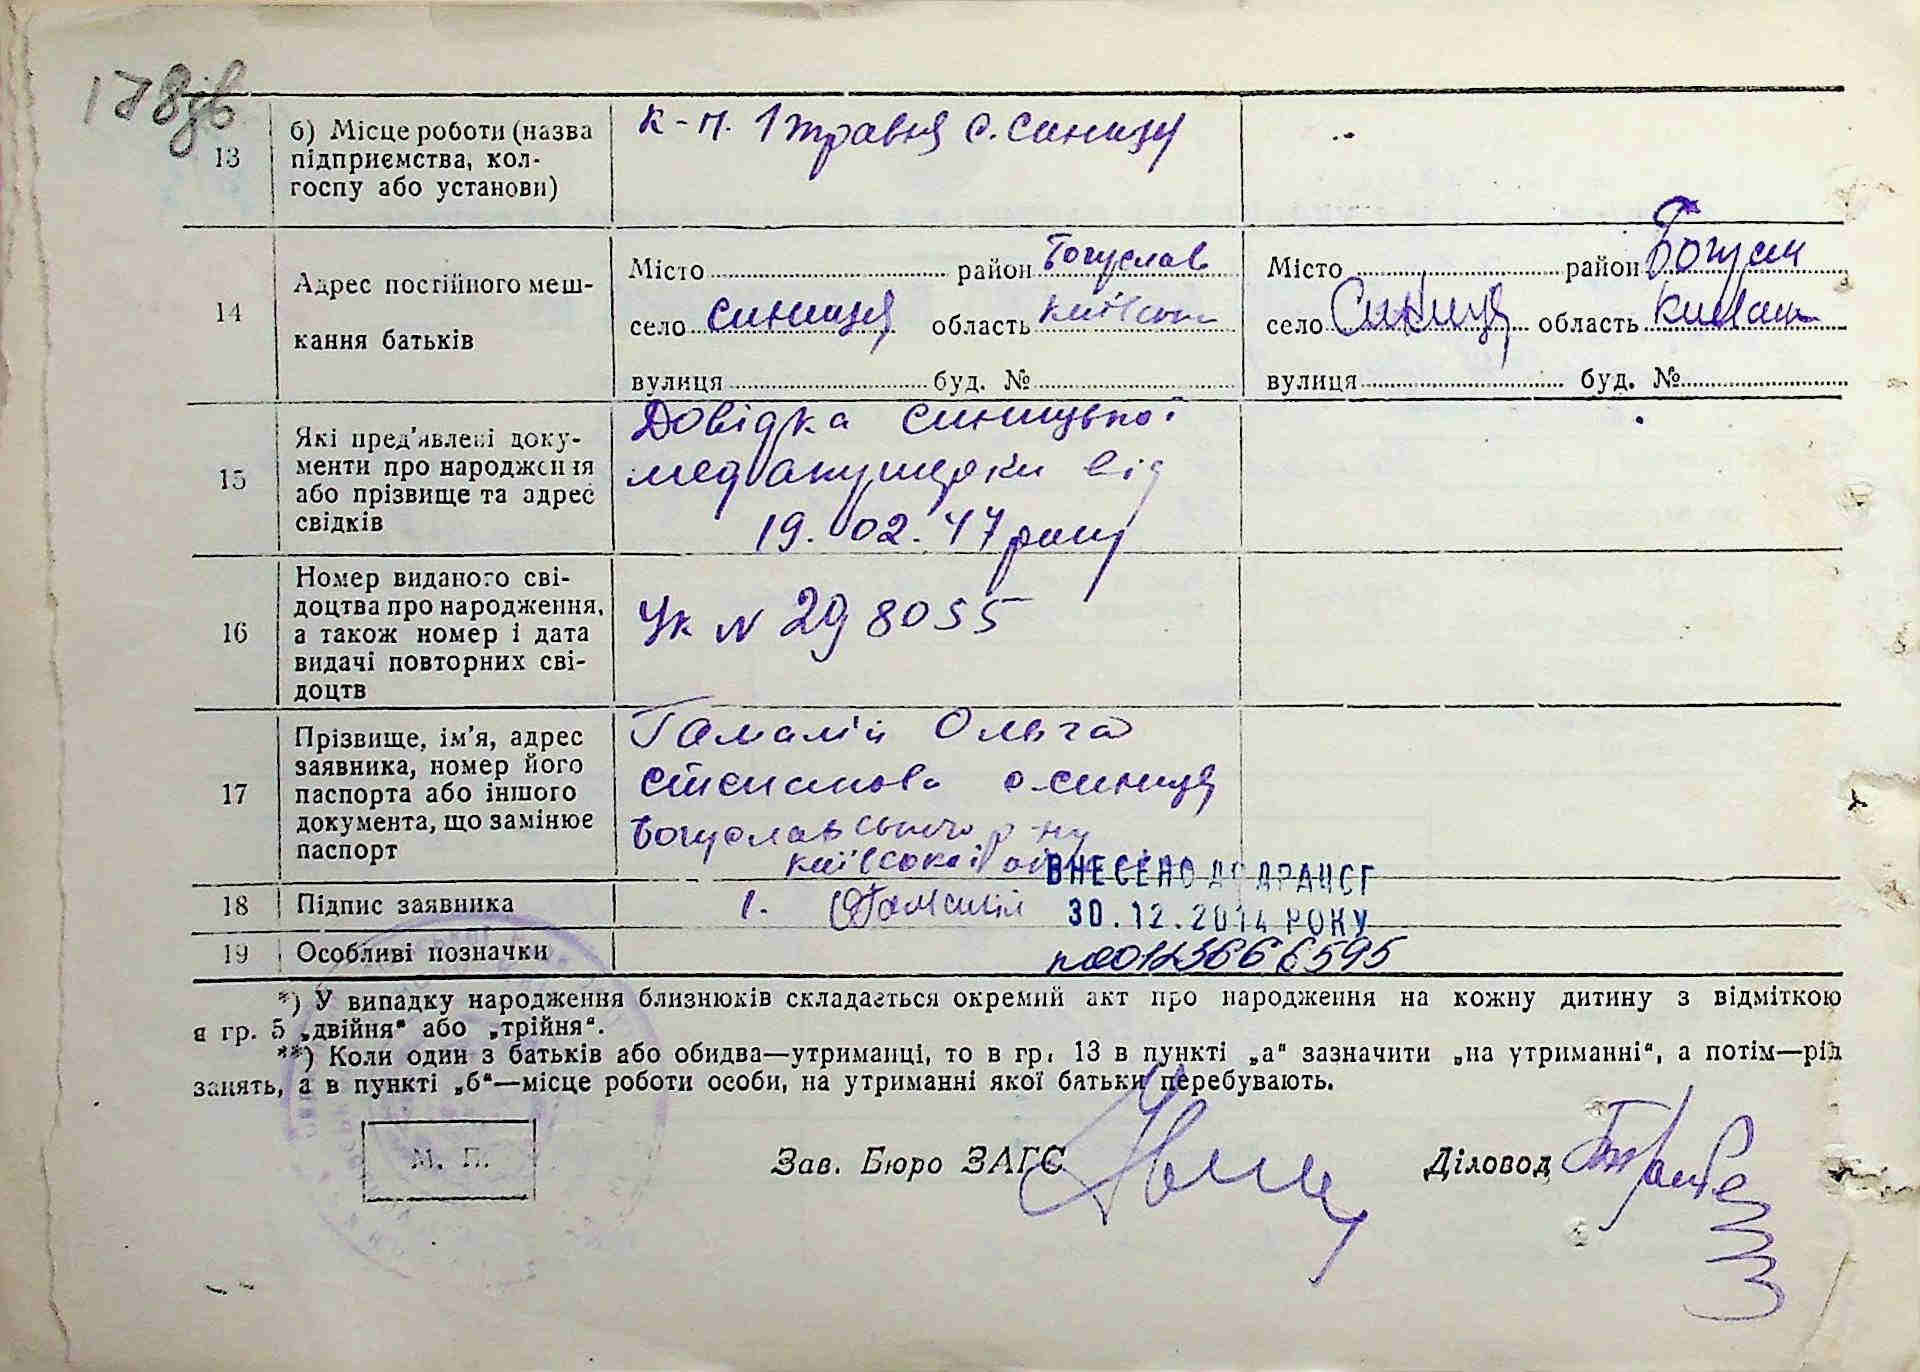 178зв
13 б) Місце роботи (назва підприємства, колгоспу або установи)
к-п. 1 травня с. синиця
14 Адрес постійного мешкання батьків
Місто район Богуслав
село синиця область київська
вулиця буд. №
Місто район Богусл
село Синиця область
вулиця буд. №
15 Які пред'явлені документи про народження або прізвище та адрес свідків
Довідка синицької
медакушерки від
19. 02. 47 року
16 Номер виданого свідоцтва про народження, а також номер і дата видачі повторних свідоцтв
Ук N 298055
17 Прізвище, ім'я, адрес заявника, номер його паспорта або іншого документа, що замінює паспорт
Гамалій Ольга
Степанова с. синиця
Богуславського р-ну
київської
ВНЕСЕНО ДО ДРАЦСГ
18 Підпис заявника
1. Гамалій
30.12.2014 РОКУ
19 Особливі позначки
*) У випадку народження близнюків складається окремий акт про народження на кожну дитину з відміткою
в гр. 5 „двійня“ або „трійня“.
**) Коли один з батьків або обидва—утриманці, то в гр. 13 в пункті „а“ зазначити „на утриманні“, а потім—рід
занять, а в пункті „б“—місце роботи особи, на утриманні якої батьки перебувають.
М. П.
Зав. Бюро ЗАГС
Діловод